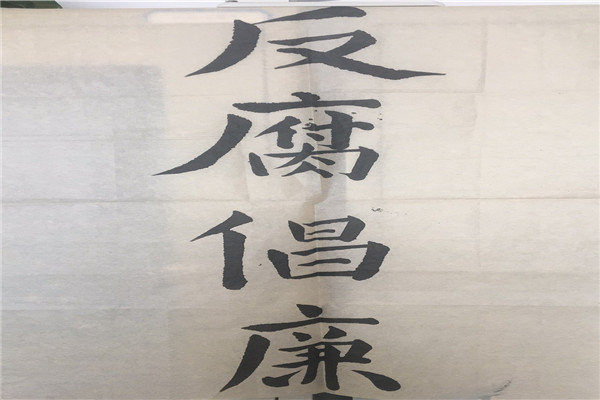 反腐倡廉